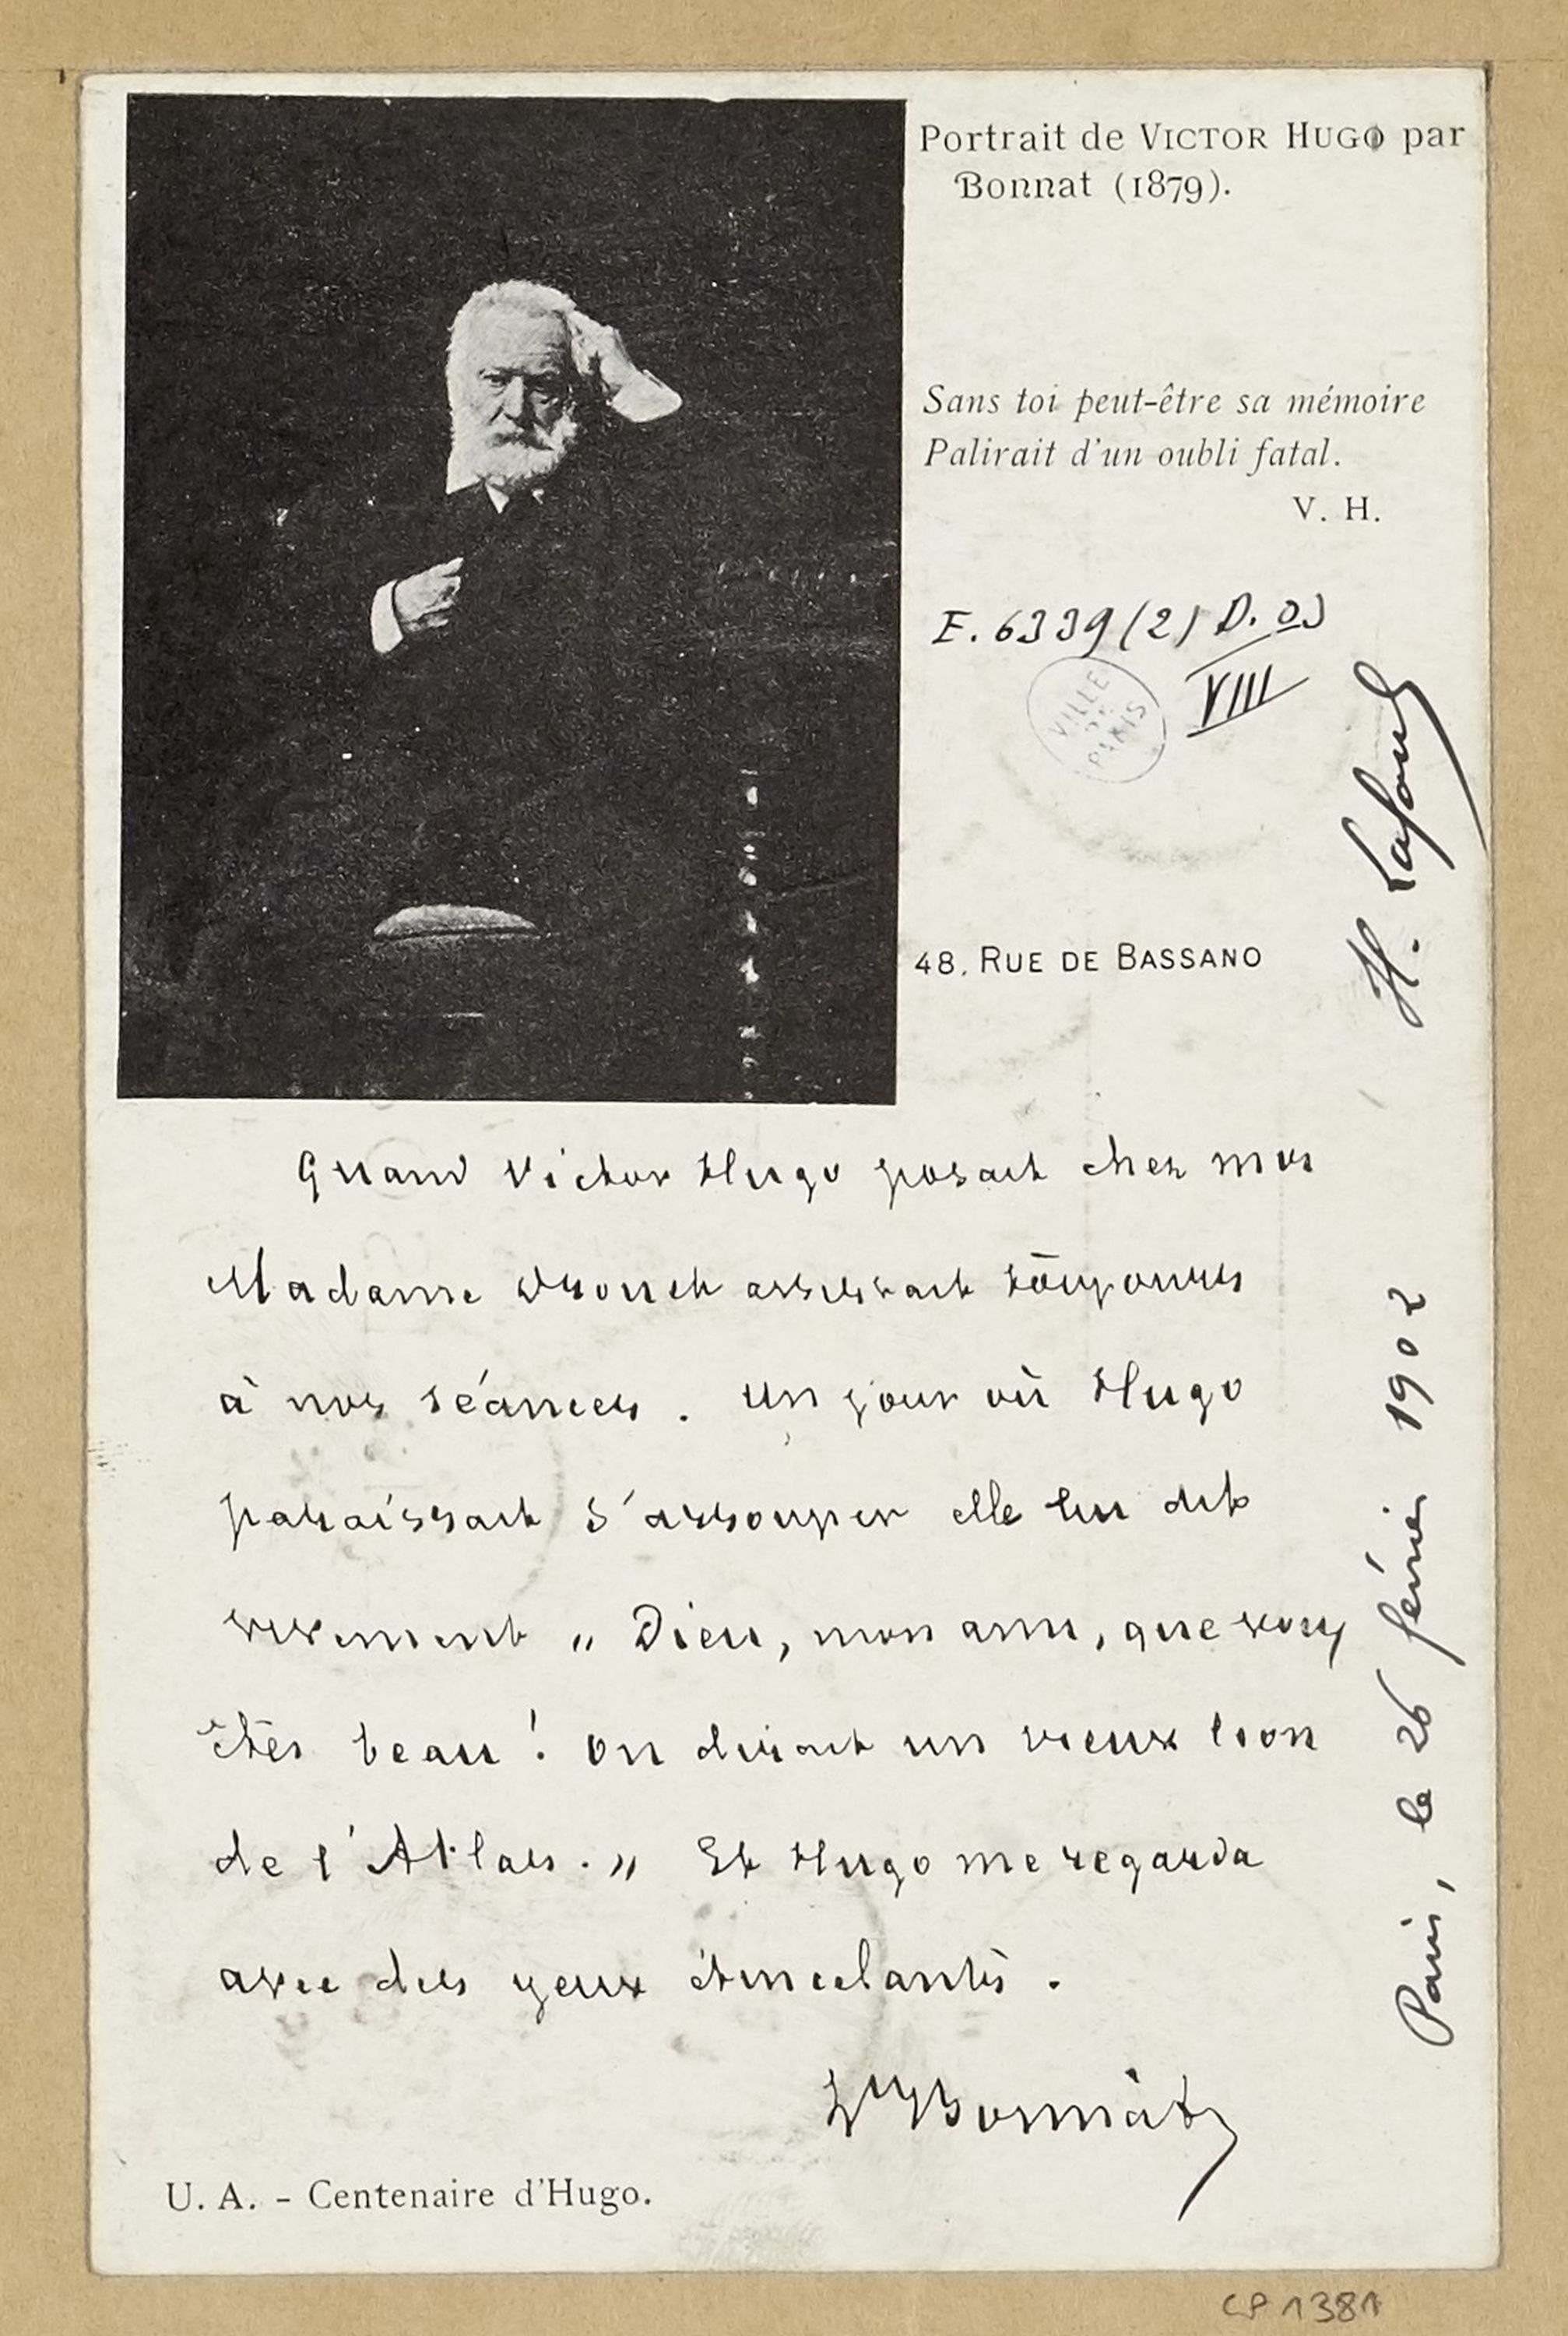 Portrait de VICTOR HUGO par
Bonnat (1879).
Sans toi peut-être sa mémoire
Palirait d'un oubli fatal.
V. H.
E. 6339 (2) D.
VIII
VILLE
DE
PARIS
48, RUE DE BASSANO
H.
Paris, le 26 février 1902
Quand Victor Hugo posait chez moi
Madame Drouet assistait toujours
à nos séances. Un jour où Hugo
paraissait s'assoupir elle lui dit
vivement " Dieu, mon ami, que vous
êtes beau ! on dirait un vieux lion
de l'Atlas. " Et Hugo me regarda
avec des yeux étincelants.
Ln Bonnat
U. A. - Centenaire d'Hugo.
CP 1381